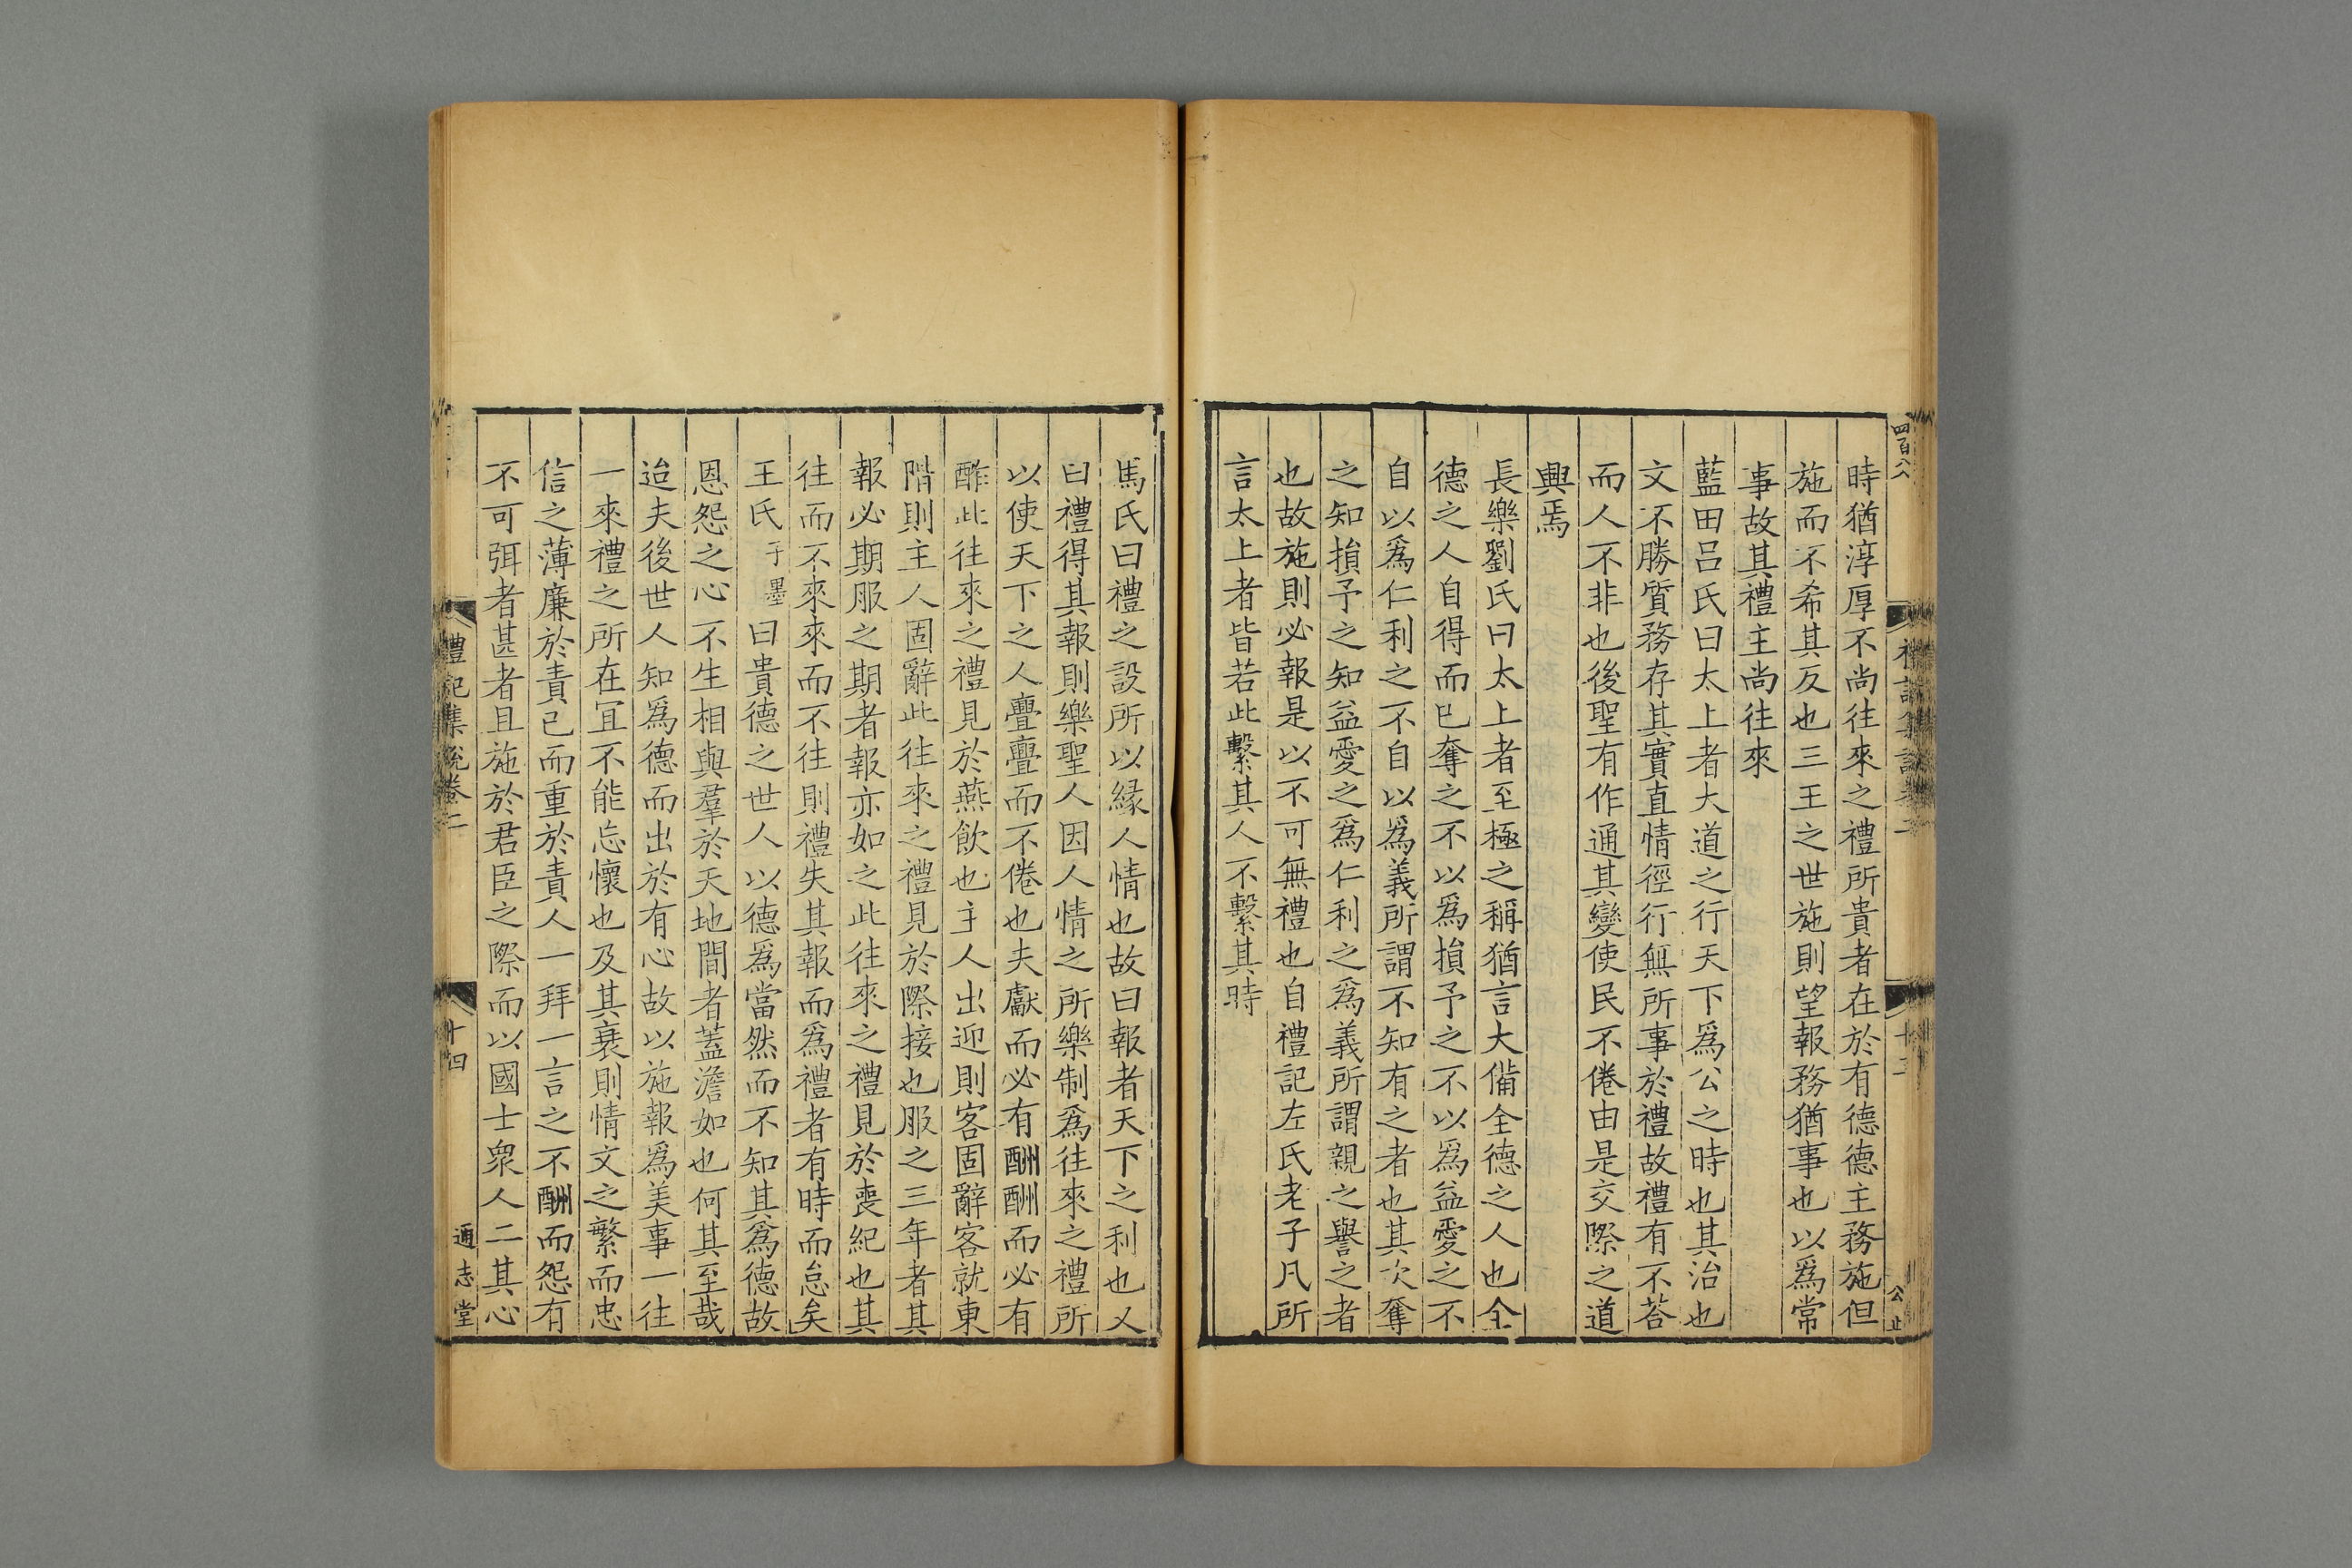 四百八八
時猶淳厚不尚往來之禮所貴者在於有德德主務施但
施而不希其反也三王之世施則望報務猶事也以爲常
事故其禮主尚往來
藍田呂氏曰太上者大道之行天下爲公之時也其治也
文不勝質務存其實直情徑行無所事於禮故禮有不荅
而人不非也後聖有作通其變使民不倦由是交際之道
興焉
長樂劉氏曰太上者至極之稱猶言大備全德之人也全
德之人自得而已奪之不以爲損予之不以爲益愛之不
自以爲仁利之不自以爲義所謂不知有之者也其次奪
之知損予之知益愛之爲仁利之爲義所謂親之譽之者
也故施則必報是以不可無禮也自禮記左氏老子凡所
言太上者皆若此繫其人不繫其時
馬氏曰禮之設所以緣人情也故曰報者天下之利也又
曰禮得其報則樂聖人因人情之所樂制爲往來之禮所
以使天下之人亹亹而不倦也夫獻而必有酬酬而必有
酢此往來之禮見於燕飲也主人出迎則客固辭客就東
階則主人固辭此往來之禮見於際接也服之三年者其
報必期服之期者報亦如之此往來之禮見於喪紀也其
往而不來來而不往則禮失其報而爲禮者有時而怠矣
王氏子墨曰貴德之世人以德爲當然而不知其爲德故
恩怨之心不生相與羣於天地間者蓋澹如也何其至哉
迨夫後世人知爲德而出於有心故以施報爲美事一往
一來禮之所在冝不能忘懷也及其衰則情文之繁而忠
信之薄廉於責已而重於責人一拜一言之不酬而怨有
不可弭者甚者且施於君臣之際而以國士衆人二其心
禮記集說卷二
十四
通志堂